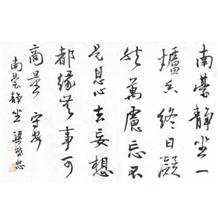 南臺靜坐一
爐香終日凝
然萬慮忘不
是息心去妄想
都緣無事可
商量 守安
南臺靜坐